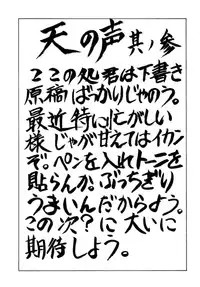 天の声 其ノ参
ここの処君は下書き
原稿ばっかりじゃのう。
最近特に忙がしい
様じゃが甘えてはイカン
ぞ。ペンを入れトーンを
貼らんか。ぶっちぎり
うまいんだからよう。
この次？に大いに
期待しよう。